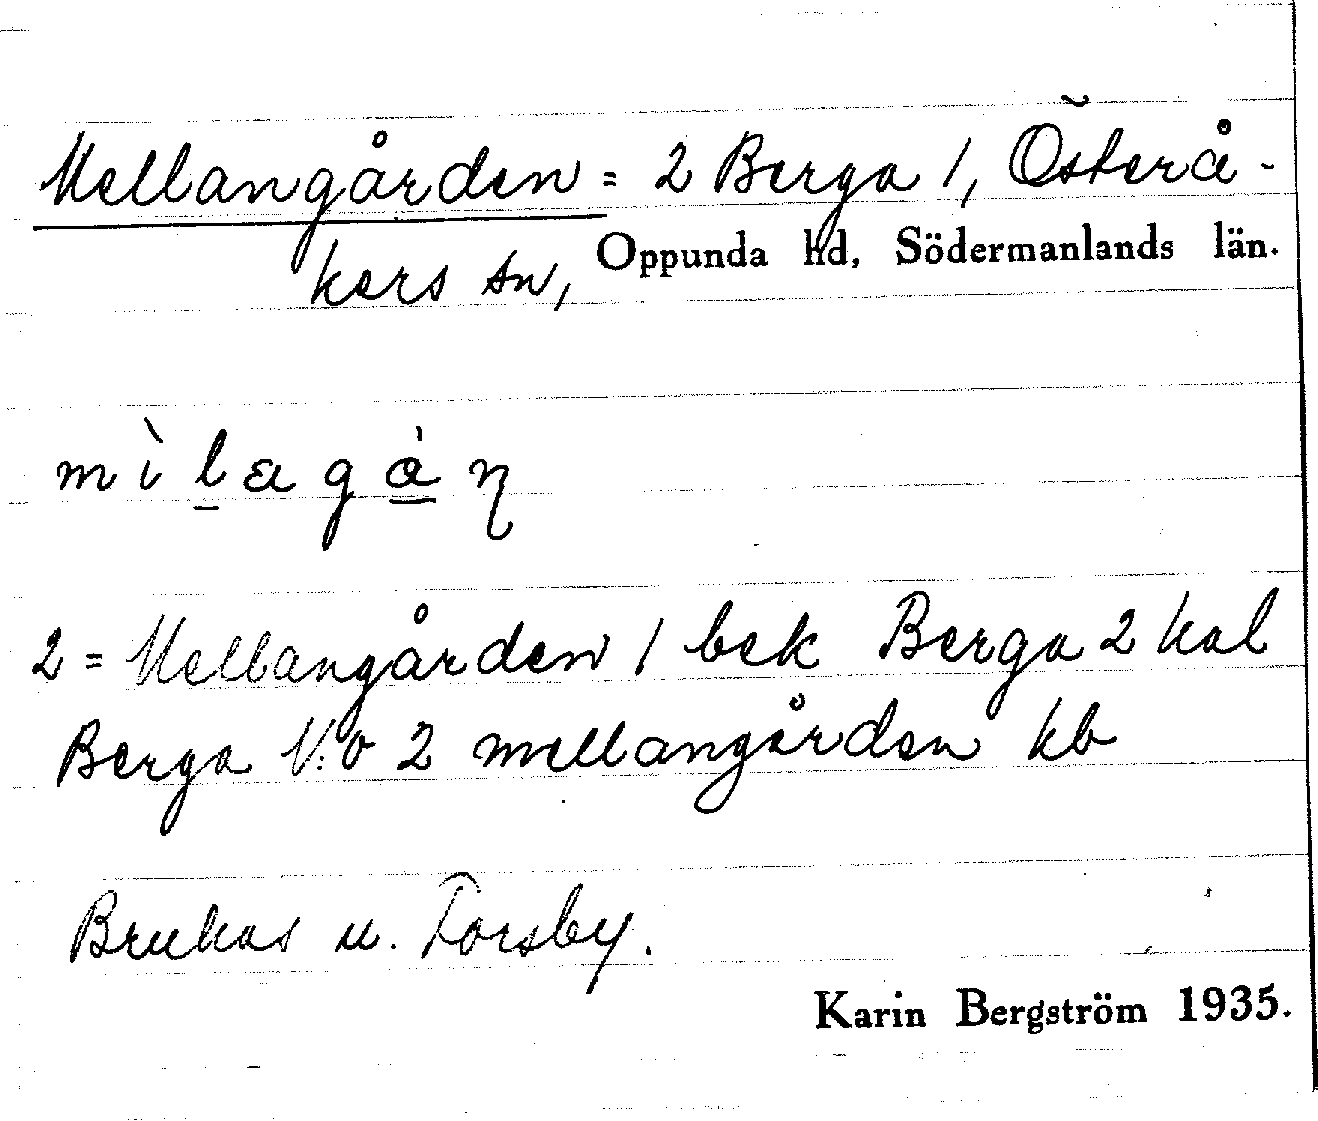 Mellangården = 2 Berga 1, Österå-
kers sn, Oppunda hd, Södermanlands län.
mìlagȧn
2 = Mellangården 1 bek Berga 2 kal
Berga N:o 2 mellangården kb
Brukas u. Forsby.
Karin Bergström 1935.